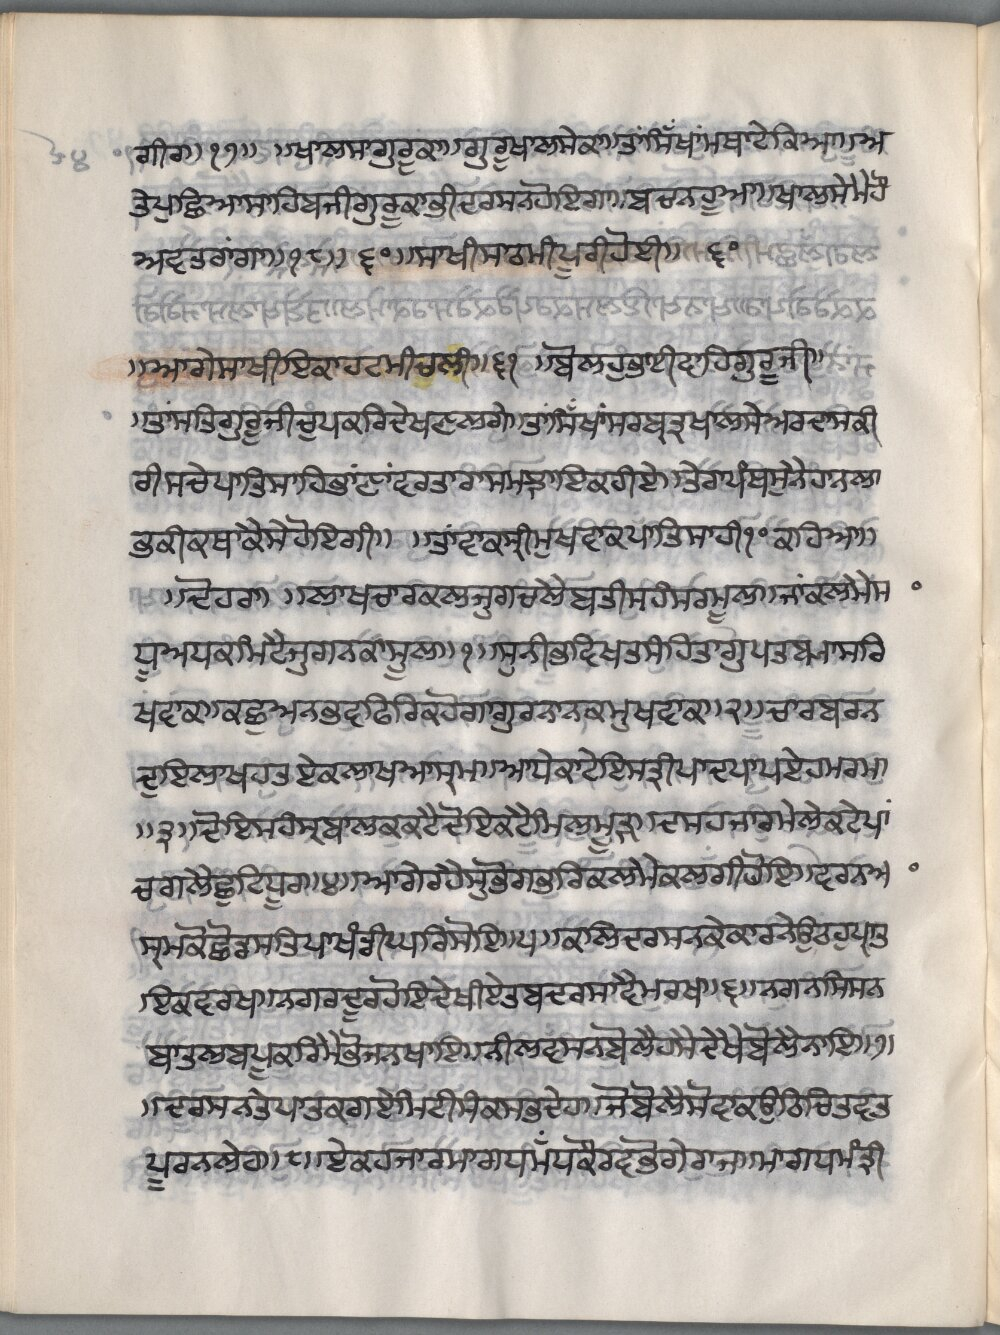 ਗੀਗ॥੧੭॥ ॥ਖਾਲਸਾਗੁਰੂਕਾ॥ਗੁਰੂਖਾਲਸੇਕਾ॥ਤਾਂਸਿੰਘਾਂਮਥਾਟੇਕਿਆ॥ਅ
ਤੇਪੁਛਿਆਸਾਹਿਬਜੀਗੁਰੂਕਾਭੀਦਰਸਨਹੋਇਗਾ॥ਬਚਨਹੂਆ॥ਖਾਲਸੇਮੈਹੌ
ਅਵਤਰਾਂਗਾ॥੧੮॥੬੦॥ਸਾਖੀਸਾਠਮੀਪੂਰੀਹੋਈ॥ ੬੦
॥ਆਗੇਸਾਖੀਇਕਾਹਟਮੀਚਲੀ॥੬੧ ॥ਬੋਲਹੁਭਾਈਵਾਹਿਗੁਰੂਜੀ॥
॥ਤਾਂਸਤਿਗੁਰੂਜੀਚੁਪਕਰਿਦੇਖਣਲਗੇ॥ਤਾਂਸਿੰਘਾਂਸਰਬਤ੍ਰਖਾਲਸੇਅਰਦਾਸਕੀ
ਗੀਸਚੇਪਾਤਿਸਾਹਿਭਾਂਣਾਂਵਰਤਾਰਾਸਮਝਾਇਕਹੀਏ॥ਤੇਰਾਪੰਥਸੁਨੈਹਾਨਲਾ
ਭਕੀਕਥਾਕੈਸੇਹੋਇਗੀ॥ ॥ਤਾਂਵਾਕਸ੍ਰੀਮੁਖਵਾਕਪਾਤਿਸਾਹੀ੧੦ਕਹਿਆ॥
॥ਦੋਹਰਾ ॥ਲਾਖਚਾਰਕਲਜੁਗਚਲੈਬਤੀਸਹੀਸਰਮੂਲ॥ਜਾਂਕਲਮੇਸ
ਪੂਅਪਕਾਮਿਟੈਜੁਗਨਕਾਸੂਲ॥੧॥ਸੁਨੀਭਵਿਖਤਸੀਹਿਤਾਗੁਪਤਬਆਸਰਿ
ਖਵਾਕ॥ਕਛੁਅਨਭਵਫਿਰਿਕਹੋਗਾਗੁਰਨਾਨਕਮੁਖਵਾਕ॥੨॥ਚਾਰਬਰਨ
ਦੁਇਲਾਖਹਤਏਕਲਾਖਆਸ੍ਰਮ॥ਆਪੇਕਾਟੇਇਸਤ੍ਰੀਪਾਦਪਾਪਏਹਮਰਮ॥
॥੩॥ਦੋਇਸਹੀਸ੍ਰਬਾਲਕਕਟੈਦੋਇਕਟੈਮਿਲਮੂੜ॥ਦਸਹਜਾਰੁਮੇਲੇਕਟੇਪਾਂ
ਚਗਲੈਛੂਟਿਪੂਰ॥੪॥ਆਗੇਰਹੈਸੁਭੋਗਭੁਰਿਕਲਮੇਕਲਗੀਹੋਇ॥ਵਰਨਅ
ਸ੍ਰਮਕੋਛੋਡਸਤਿਪਾਖੰਡੀਘਰਿਸੋਇ॥੫॥ਕਾਲਦਰਸਨਕੇਕਾਰਨੇਉਠਹੁਪ੍ਰਾਤ
ਇਕਵਰਖਾ॥ਨਗਰਦੂਰਹੋਇਦੇਖੀਏਤਬਦਰਸਾਵੈਮਰਖਾ॥੬॥ਨਗਨਸਿਸਨ
ਬਾਤੁਲਬਪੂਕਰਿਮੈਭੋਜਨਖਾਇ॥ਨੀਲਵਸਨਬੋਲੈਹਸੈਦੇਖੈਬੋਲੈਨਾਇ॥੭॥
॥ਦਰਸਨਤੇਪਾਤਕਗਏਮਿਟੀਸਿਕਾਸਭਦੇਹ॥ਜੋਬੋਲੈਸੋਵਾਕਉਠਿਚਿਤਵਤ
ਪੂਰਨਲੇਹ॥੮॥ਏਕਹਜਾਰਮਾਗਧਮੈਂਪਕੌਰਵਭੋਗੇਰਾਜ॥ਮਾਗਧਮੰਤ੍ਰੀ